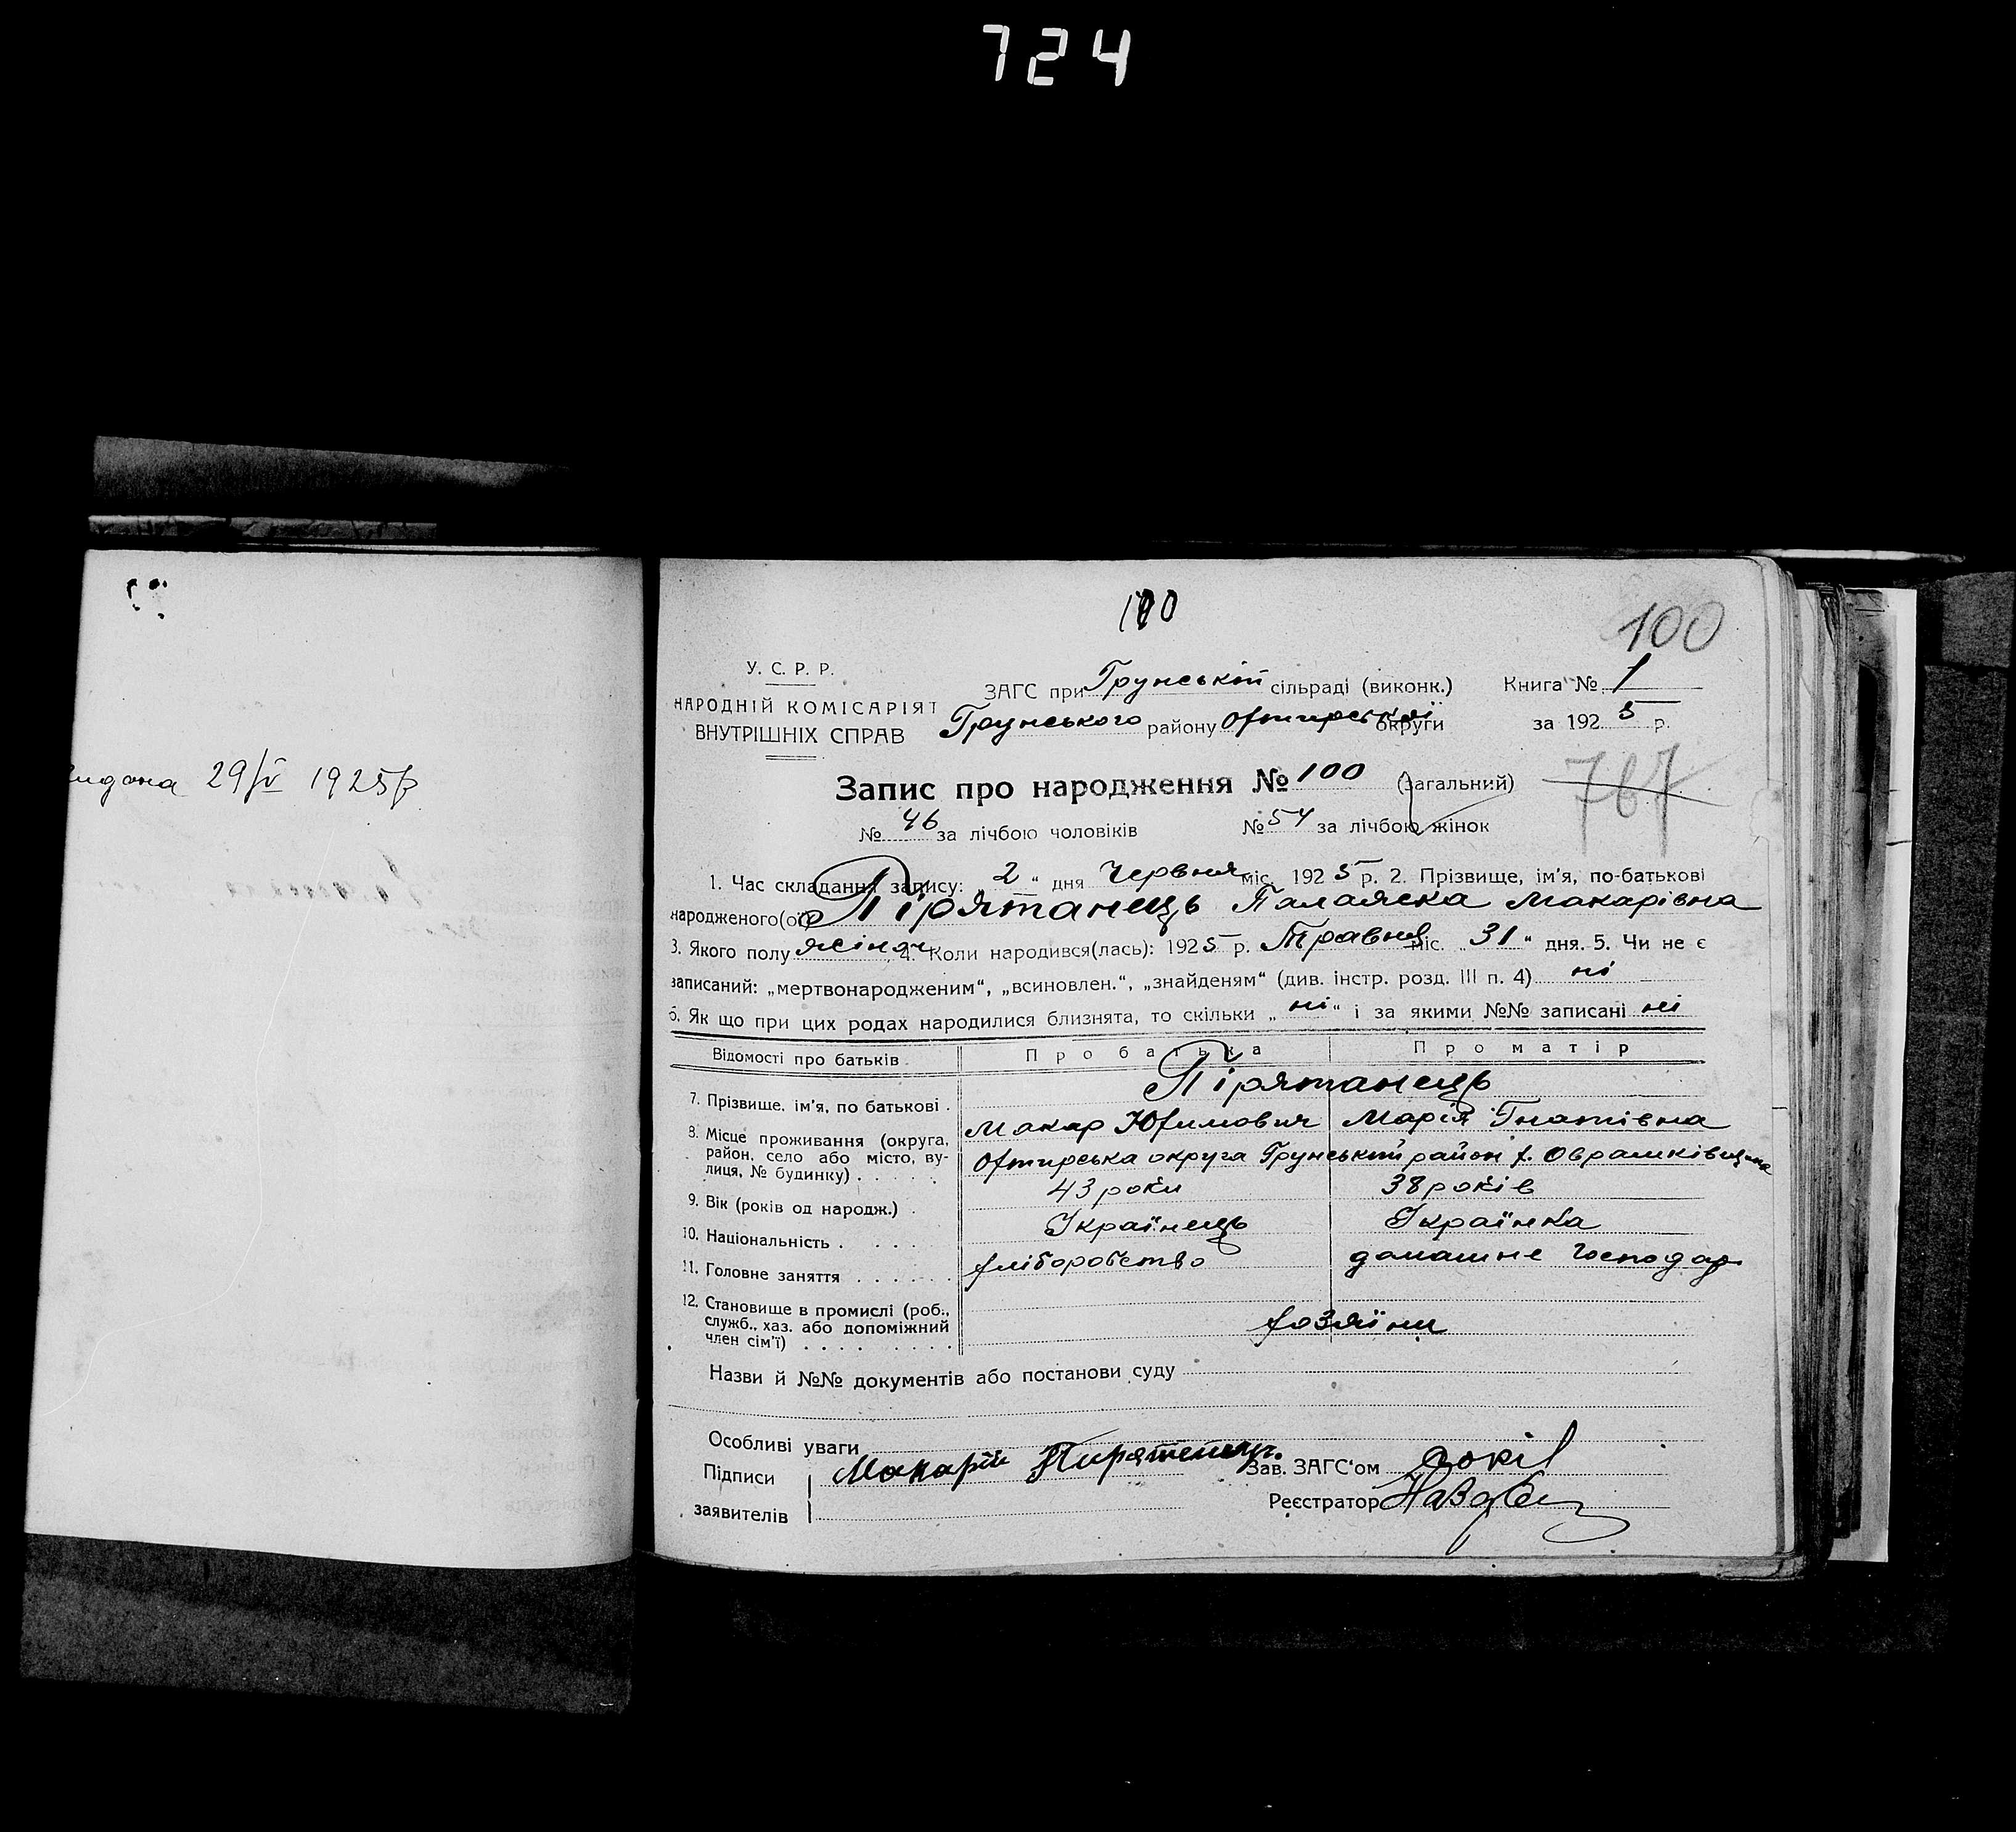 724
видана 29/V 1925 р
100
100
У. С. Р. Р.
НАРОДНІЙ КОМІСАРІЯТ
ВНУТРІШНІХ СПРАВ
ЗАГС при Грунській сільраді (виконк.) Книга № 1
Грунського району Охтирської округи за 1925 р.
Запис про народження № 100 (загальний)
767
№ 46 за лічбою чоловіків № 54 за лічбою жінок
1. Час складання запису: „2“ дня Червня міс. 1925 р. 2. Прізвище, ім'я, по-батькові
народженого(ої) Пірятанець Палажка Макарівна
3. Якого полу жіноч 4. Коли народився(лась): 1925 р. Травня міс. „31“ дня. 5. Чи не є
записаний: „мертвонародженим“, „всиновлен.“, „знайденям“ (див. інстр. розд. III п. 4) ні
6. Як що при цих родах народилися близнята, то скільки „ні“ і за якими №№ записані ні
Відомості про батьків Про батька Про матір
Пірятанець
7. Прізвище, ім'я, по батькові . Макар Юхимович Марія Гнатівна
8. Місце проживання (округа,
район, село або місто, ву-
лиця, № будинку) . . . . . Охтирська округа Грунський район х. Аврамківщина
9. Вік (років од народж.) . 43 роки 38 років
10. Національність . . . . Українець Українка
11. Головне заняття . . . . . . хліборобство домашне господар
12. Становище в промислі (роб.,
служб., хаз. або допоміжний
член сім'ї) . . . . . . . . . хозяїни
Назви й №№ документів або постанови суду
Особливі уваги
Підписи
заявителів
Макарій Пирятенець.
Зав. ЗАГС'ом Сокіл
Реєстратор